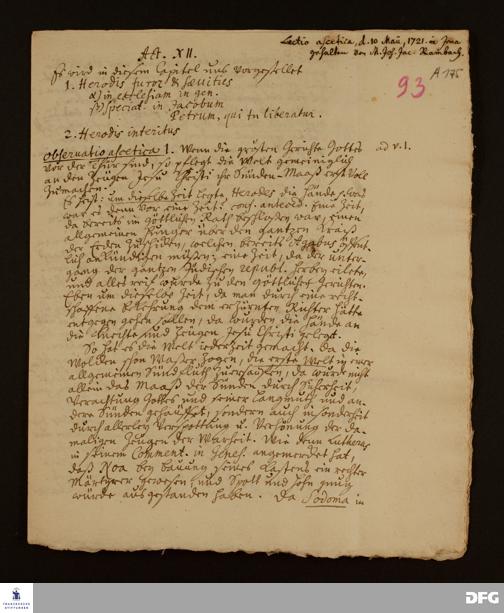 Lectio ascetica, d. 10 Maii, 1721. in Jena
gehalten von M. Joh. Jac. Rambach.
A 175
93
Act. XII.
Es wird in diesem Capitel uns vorgestellet
1. Herodis furor & saevities
α) in ecclesiam in gen.
β) special. in Jacobum
Petrum, qui tn liberatur.
2. Herodis interitus
Observatio ascetica 1. Wenn die grösten Gerichte Gottes
ad v. 1.
vor der Thür sind, so pflegt die Welt gemeiniglich
an den Zeugen Jesu Christi ihr Sünden-Maaß erst voll
zu machen.
Es heist: um dieselbe Zeit legte Herodes die Hände
war es denn vor eine Zeit? conf. anteced. Eine Zeit,
da bereits im göttlichen Rath beschlossen war, einen
allgemeinen Hunger über den gantzen Kraiß
der Erden zu schicken, welchen bereits Agabus öffent-
lich ankündigen müssen; eine Zeit, da der unter-
gang der gantzen Jüdischen republ. herbey eilete,
und alles reif wurde zu den göttlichen Gerichten.
Eben um dieselbe Zeit, da man durch eine recht-
schaffene Bekehrung dem erzürnten Richter hätte
entgegen gehen sollen, da wurden die Hände an
die Knechte und Zeugen Jesu Christi gelegt.
So hat es die Welt iederzeit gemacht. Da die
Wolcken schon Wasser zogen, die erste Welt in einer
allgemeinen Sündfluth zu ersäuffen, da wurde nicht
allein das Maaß der Sünden durch Sicherheit,
Verachtung Gottes und seiner Langmuth und an-
dere Sünden gehäuffet, sondern auch insonderheit
durch allerley Verspottung u. Verhönung der da-
maligen Zeugen der Warheit. Wie denn Lutherus
in seinem Comment. in Genes. angemercket hat,
daß Noa bey bauung seines Kastens ein rechter
Märtyrer gewesen, und Spott und Hohn genug
würde ausgestanden haben. Da Sodoma in
FRANCKESCHE
STIFTUNGEN
DFG